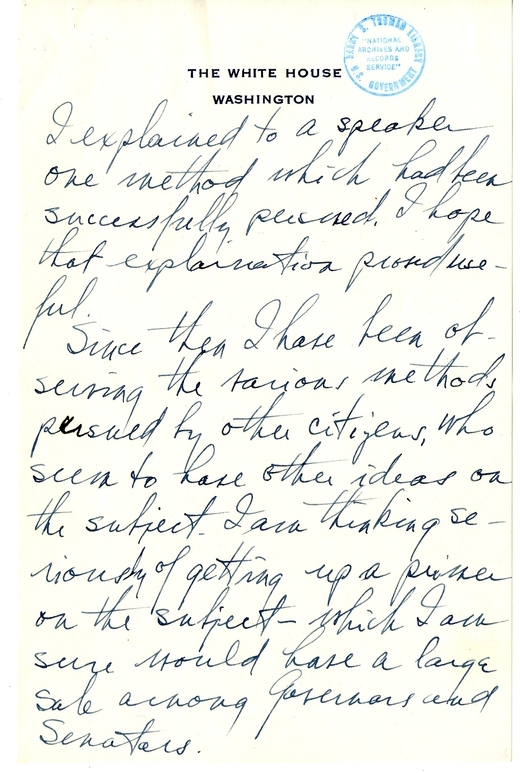 HARRY S. TRUMAN LIBRARY
"NATIONAL
ARCHIVES AND
RECORDS
SERVICE"
U.S. GOVERNMENT
THE WHITE HOUSE
WASHINGTON
I explained to a speaker
one method which had been
successfully persued. I hope
that explaination proved use-
ful.
Since then I have been ob-
serving the various methods
persued by other citizens, who
seem to have other ideas on
the subject. I am thinking se-
riously of getting up a primer
on the subject - which I am
sure would have a large
sale among Governors and
Senators.